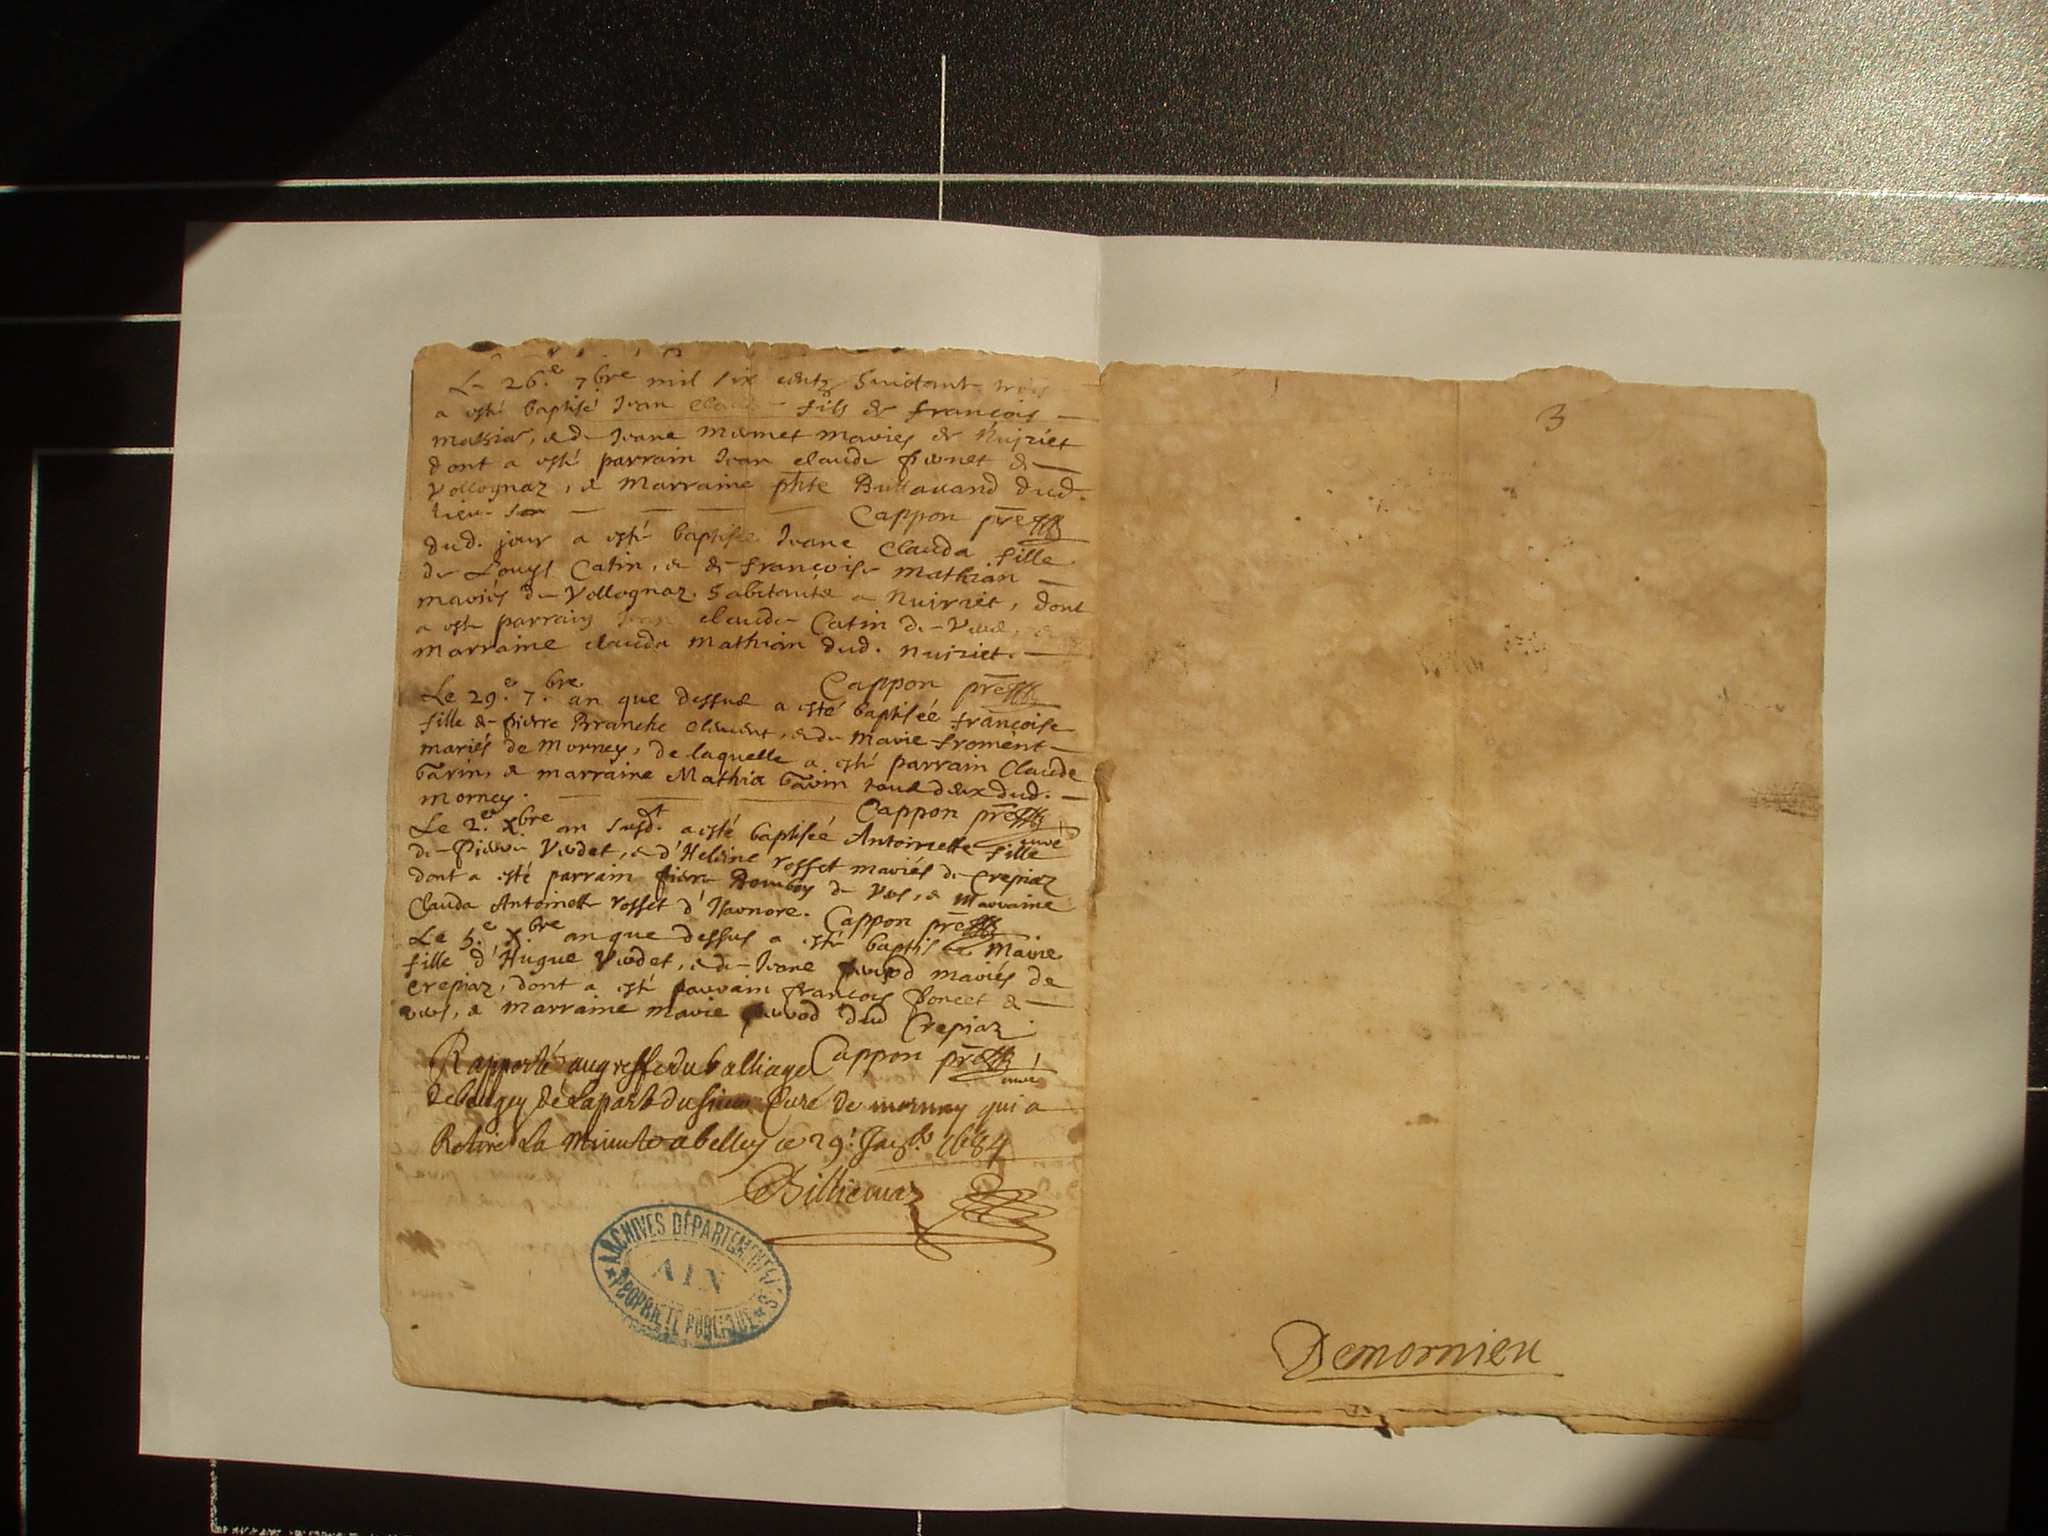 Le 26.e 7bre mil six centz huictante trois
a esté baptisé Jean Claude fils de françois
mathia, & de Jeane mermet mariés de Nuiriet
dont a esté parrain Jean claude de
Vollognaz, & Marraine dud.
lieu
Cappon pre
dud. jour a esté baptisée Jeane Clauda fille
de Louys Catin, & de françoise Mathian
mariés de Vollognaz habitants a Nuiriet, dont
a esté parrain Jean claude Catin de
marraine clauda mathian dud. Nuiriet.
Cappon pre
Le 29.e 7.bre an que dessus a esté baptiséé françoise
fille de pierre Branche clement, & de Marie froment
mariés de Morney, de laquelle a esté parrain Claude
& marraine Mathia tous deux dud.
morney.
Cappon pre
curé
Le 2.e Xbre an susdt. a esté baptiséé Antoinette fille
de Pierre Verdet, & d'Heleine rosset mariés de Crepiaz
dont a esté parrain pierre de Vers, & Marraine
Clauda Antoinette rosset d'Isernore. Cappon pre
Le 5.e Xbre an que dessus a esté baptisée Marie
fille d'Hugue Verdet, & de Jeane mariés de
Crepiaz, dont a esté parrain françois Poncet de
vers, & marraine marie dud Crepiaz.
Cappon pre
curé
Rapporté au greffe du balliage
de beugey de la part du sieur Curé de mornay qui a
Retiré La minute a belley ce 29. 1684
Billiemaz
ARCHIVES DÉPARTEMENTALES
AIN
PROPRIÉTÉ PUBLIQUE
3
Demornieu